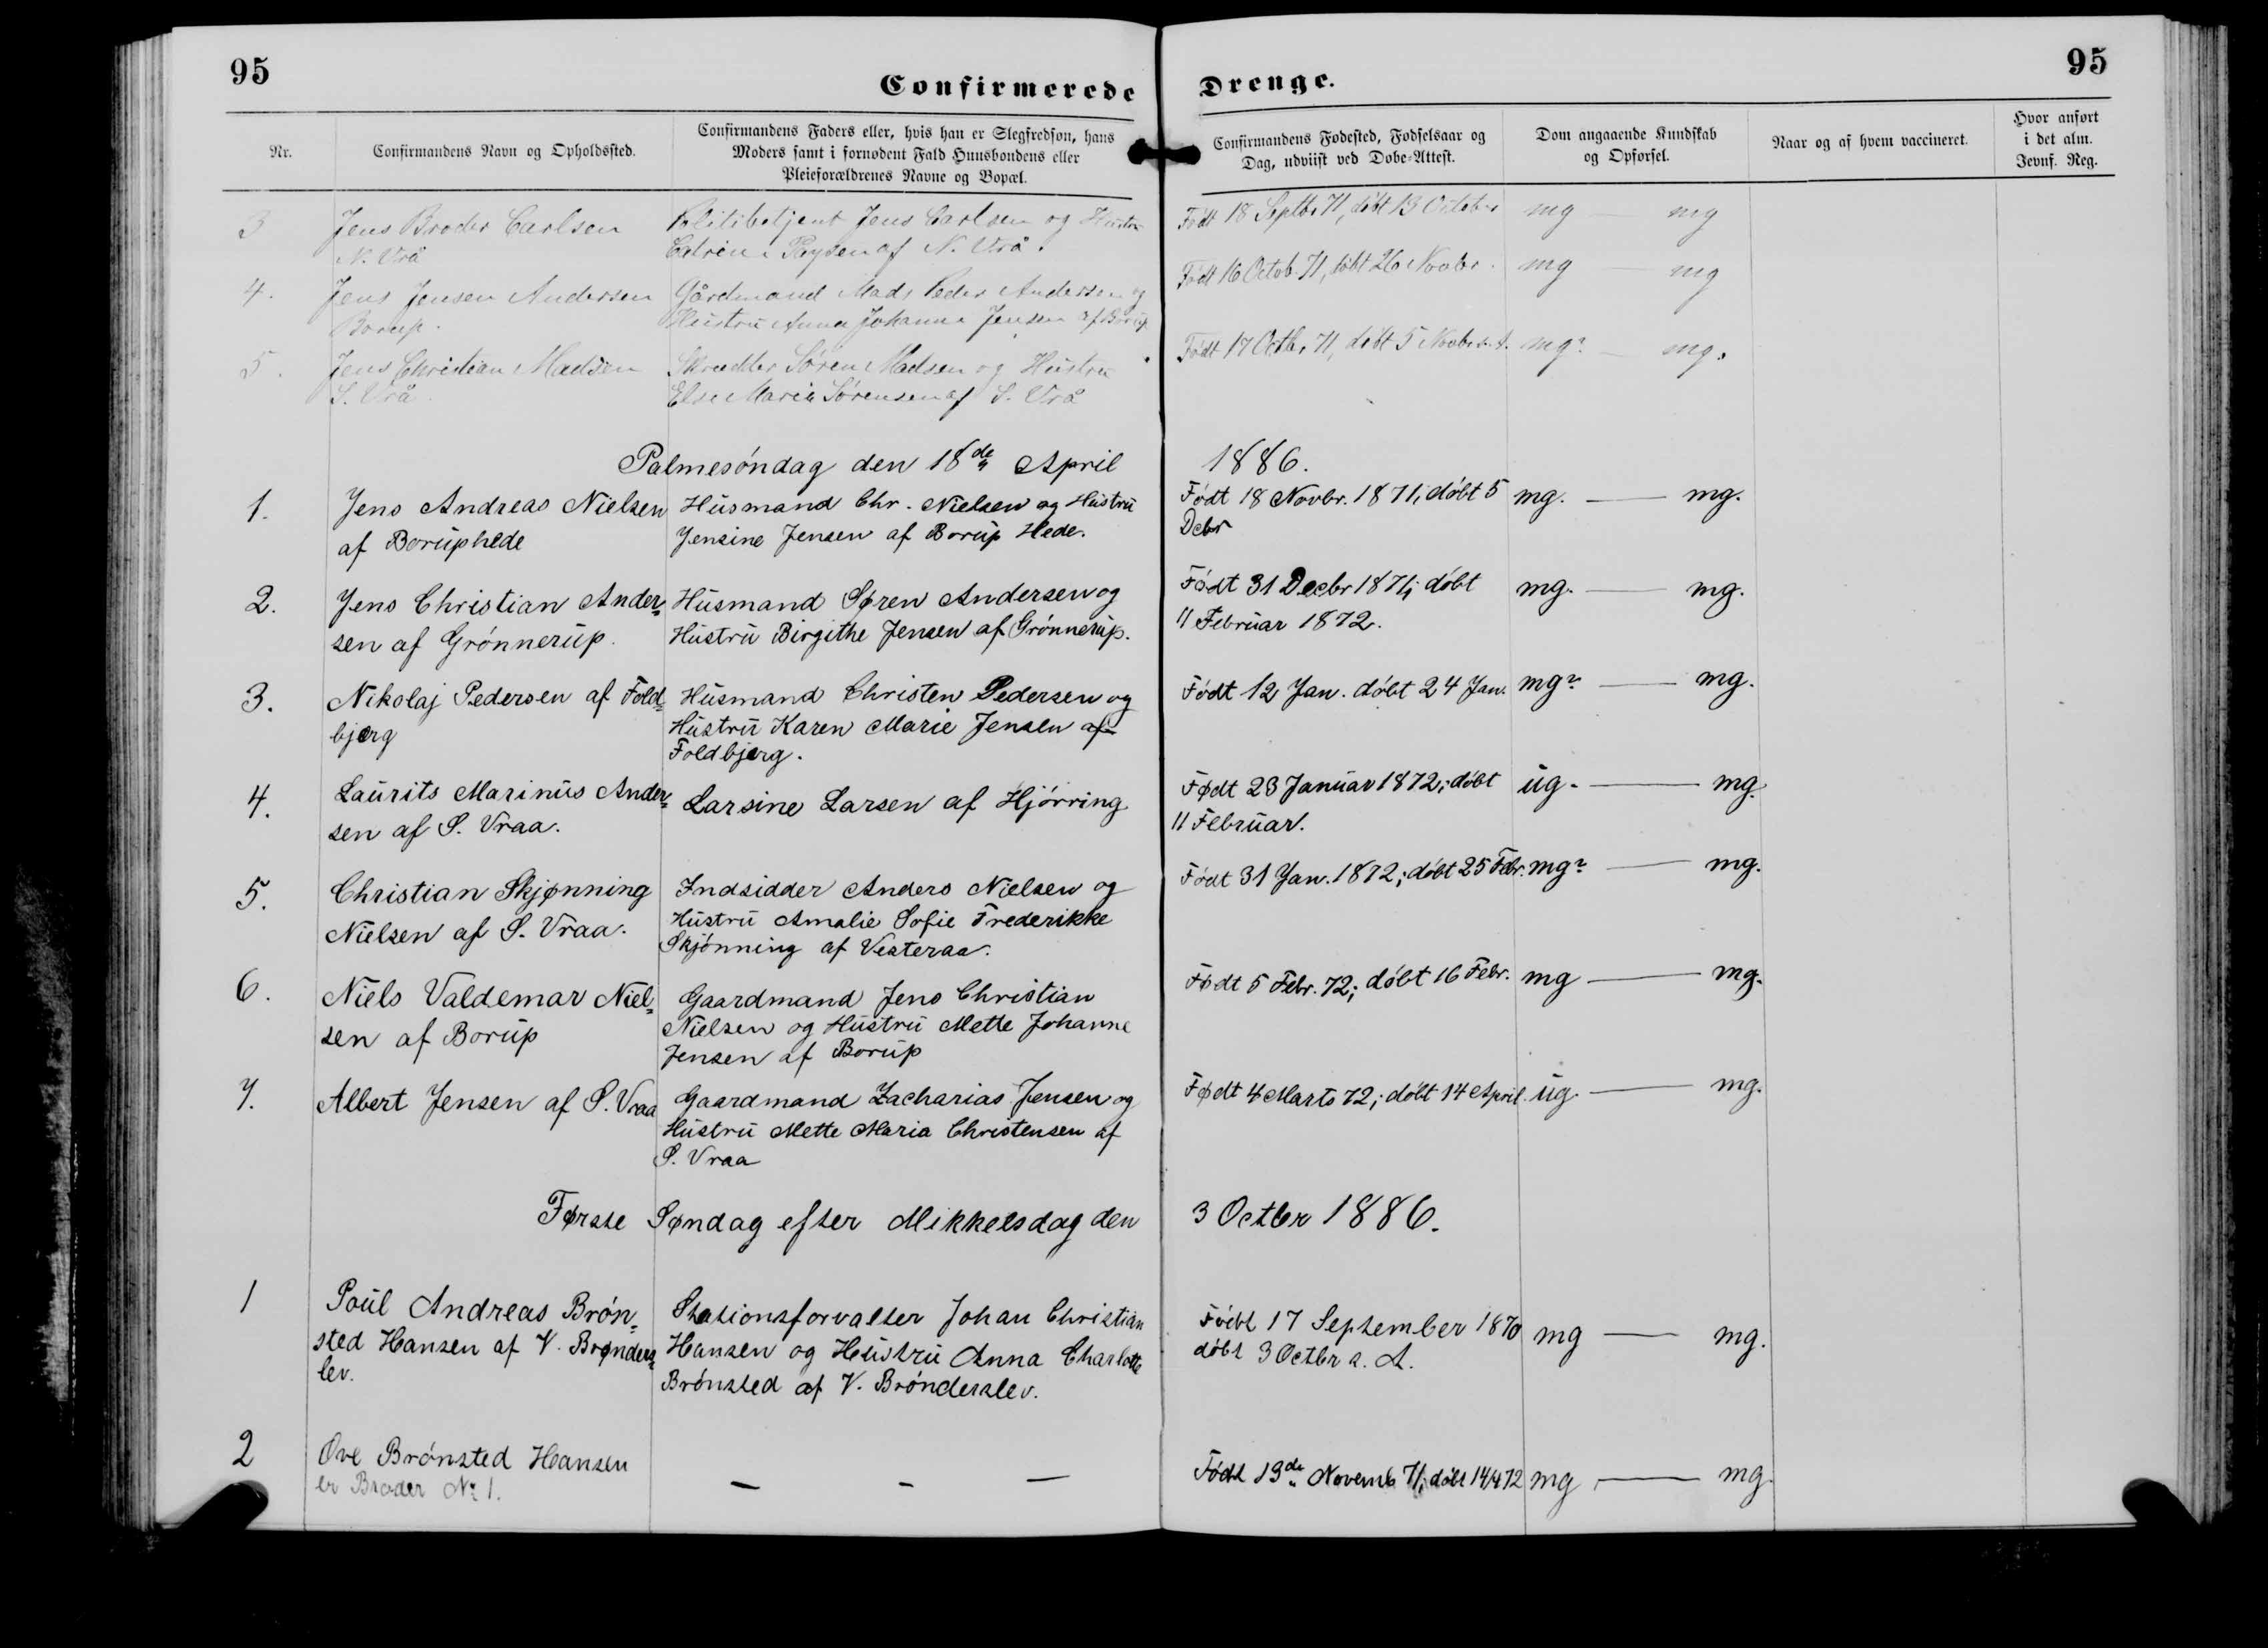 95
95
Confirmerede Drenge.
Nr.
Confirmandens Navn og Opholdssted.
Confirmandens Faders eller, hvis han er Slegfredsøn, hans
Moders samt i fornødent Fald Huusbondens eller
Pleieforældrenes Navne og Bopæl.
Confirmandens Fødested, Fødselsaar og
Dag, udviist ved Døbe-Attest.
Dom angaaende Kundskab
og Opførsel.
Naar og af hvem vaccineret.
Hvor anført
i det alm.
Jevnf. Reg.
3 Jens Broder Carlsen Politibetjent Jens Carlsen og Hustru Født 18 Septbr 71, døbt 13 October mg — mg
N. Vrå Catrine Paysen af N. Vrå.
4. Jens Jensen Andersen Gårdmand Mads Peder Andersen og Født 16 Octob. 71, døbt 26 Novbr. mg — mg
Borup. Hustru Anna Johanne Jensen af Borup
5. Jens Christian Madsen Skrædder Søren Madsen og Hustru Født 17 Octbr 71, døbt 5 Novbr s. A. mg? — mg.
S. Vrå Else Marie Sørensen af S. Vrå
Palmesøndag den 18de April 1886.
1. Jens Andreas Nielsen Husmand Chr. Nielsen og Hustru Født 18 Novbr. 1871; døbt 5 mg. — mg.
af Boruphede Jensine Jensen af Borup Hede. Debr
2. Jens Christian Ander= Husmand Søren Andersen og Født 31 Decbr 1871; døbt mg. — mg.
sen af Grønnerup. Hustru Birgithe Jensen af Grønnerup. 11 Februar 1872.
3. Nikolaj Pedersen af Fold= Husmand Christen Pedersen og Født 12 Jan. døbt 24 Jan. mg? — mg.
bjerg Hustru Karen Marie Jensen af
Foldbjerg.
4. Laurits Marinus Ander= Larsine Larsen af Hjørring Født 23 Januar 1872; døbt ug. — mg.
sen af S. Vraa. 11 Februar.
5. Christian Skjønning Indsidder Anders Nielsen og Født 31 Jan. 1872; døbt 25 Febr. mg? — mg.
Nielsen af S. Vraa. Hustru Amalie Sofie Frederikke
Skjønning af Vesteraa.
6. Niels Valdemar Niel= Gaardmand Jens Christian Født 5 Febr. 72; døbt 16 Febr. mg — mg.
sen af Borup Nielsen og Hustru Mette Johanne
Jensen af Borup
7. Albert Jensen af S. Vraa Gaardmand Zacharias Jensen og Født 4 Marts 72; døbt 14 April ug. — mg.
Hustru Mette Maria Christensen af
S. Vraa
Første Søndag efter Mikkelsdag den 3 Octbr 1886.
1 Poul Andreas Brøn= Stationsforvalter Johan Christian Født 17 September 1870 mg — mg.
sted Hansen af V. Brønders= Hansen og Hustru Anna Charlotte døbt 3 Octbr s. A.
lev. Brønsted af V. Brønderslev.
2 Ove Brønsted Hansen — - — Født 13de Novemb 71; døbt 14/4 72 mg — mg.
er Broder No 1.